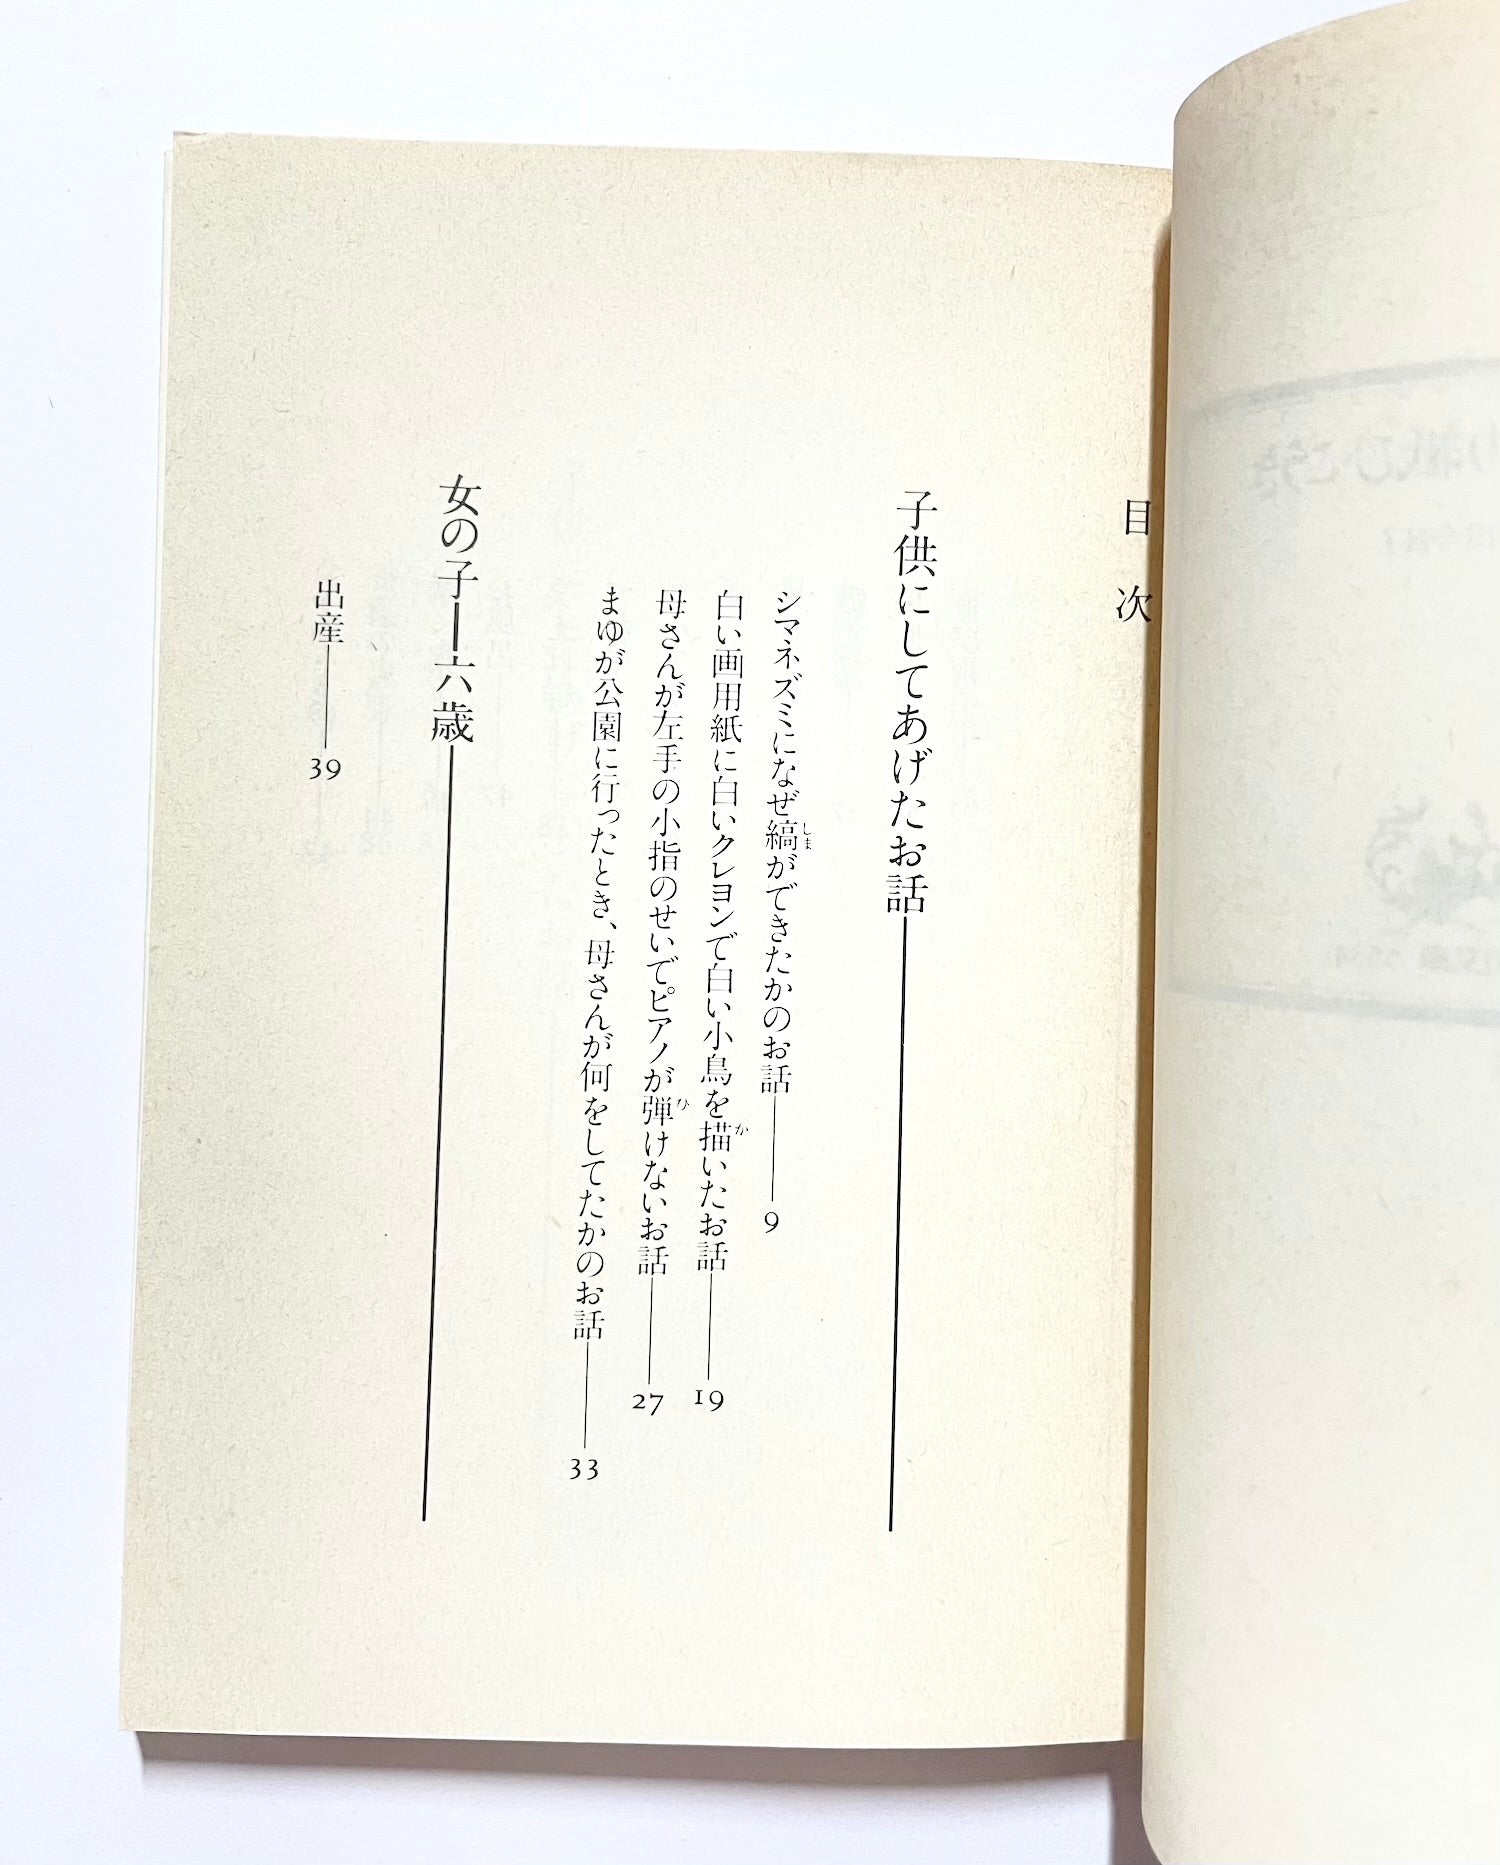 目次
子供にしてあげたお話
シマネズミになぜ縞ができたかのお話 9
しま
白い画用紙に白いクレヨンで白い小鳥を描いたお話 19
か
母さんが左手の小指のせいでピアノが弾けないお話 27
ひ
まゆが公園に行ったとき、母さんが何をしてたかのお話 33
女の子―六歳
出産 39